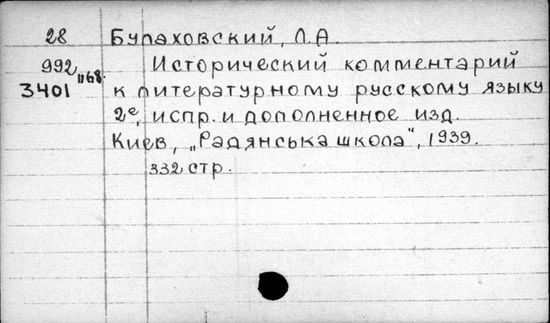 28 Булаховский, Л.А.
992 Исторический комментарий
3401 к литературному русскому языку
2е, испр. и дополненное изд.
Киев, „Радянська школа", 1939.
332 стр.